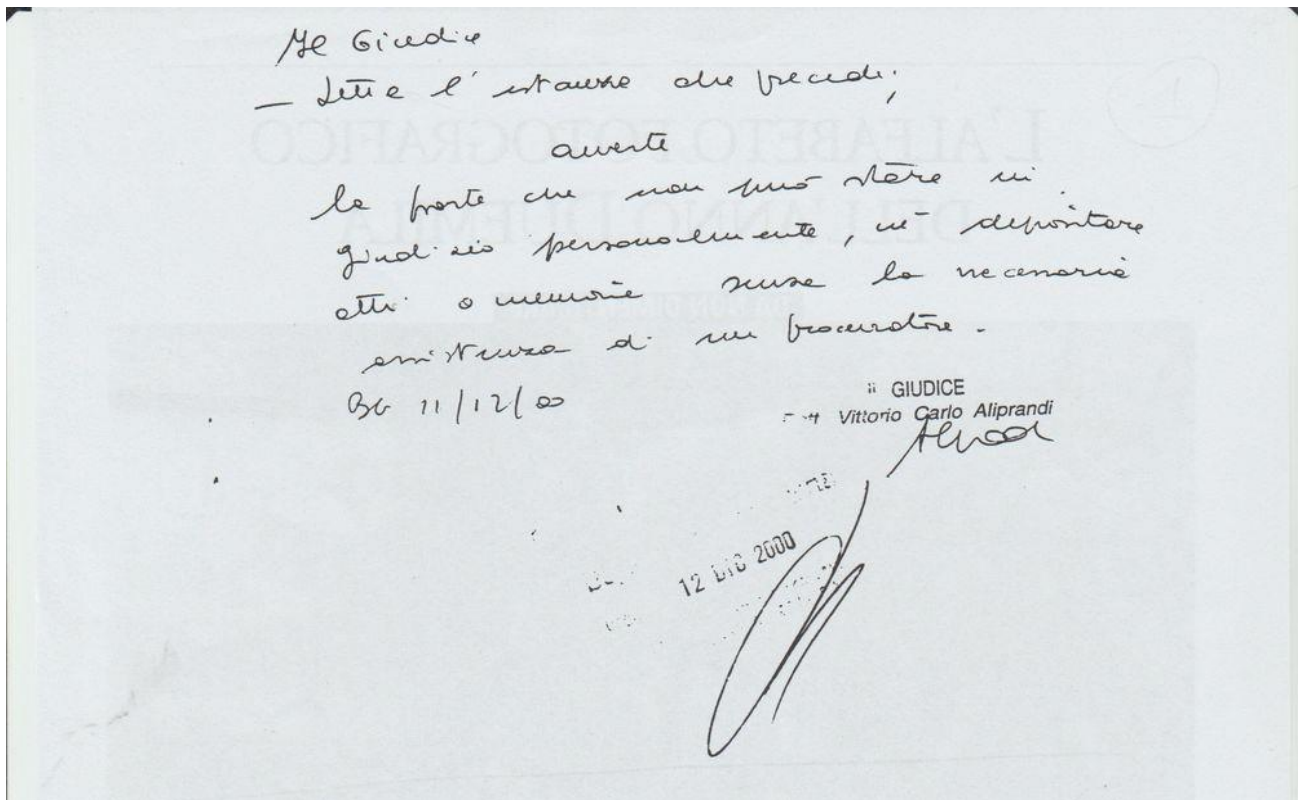 Il Giudice
— Letta l'istanza che precede;
avverte
la parte che non può stare in
giudizio personalmente, né depositare
atti o memorie senza la necessaria
assistenza di un procuratore.
BG 11/12/00
Il GIUDICE
Vittorio Carlo Aliprandi
12 DIC 2000
L'ALFABETO FOTOGRAFICO
DELL'ANNO DUEMILA